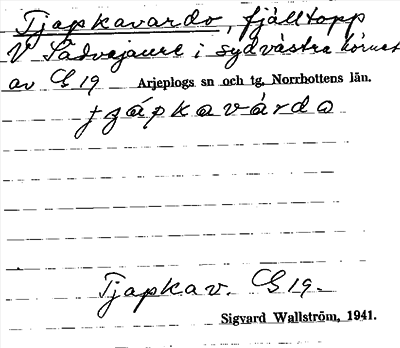 Tjapkavardo, fjälltopp
V Sädvajaure i sydvästra hörnet
av CG 19 Arjeplogs sn och tg, Norrbottens län.
tjápkavárdo
Tjapkav. CG 19.
Sigvard Wallström, 1941.